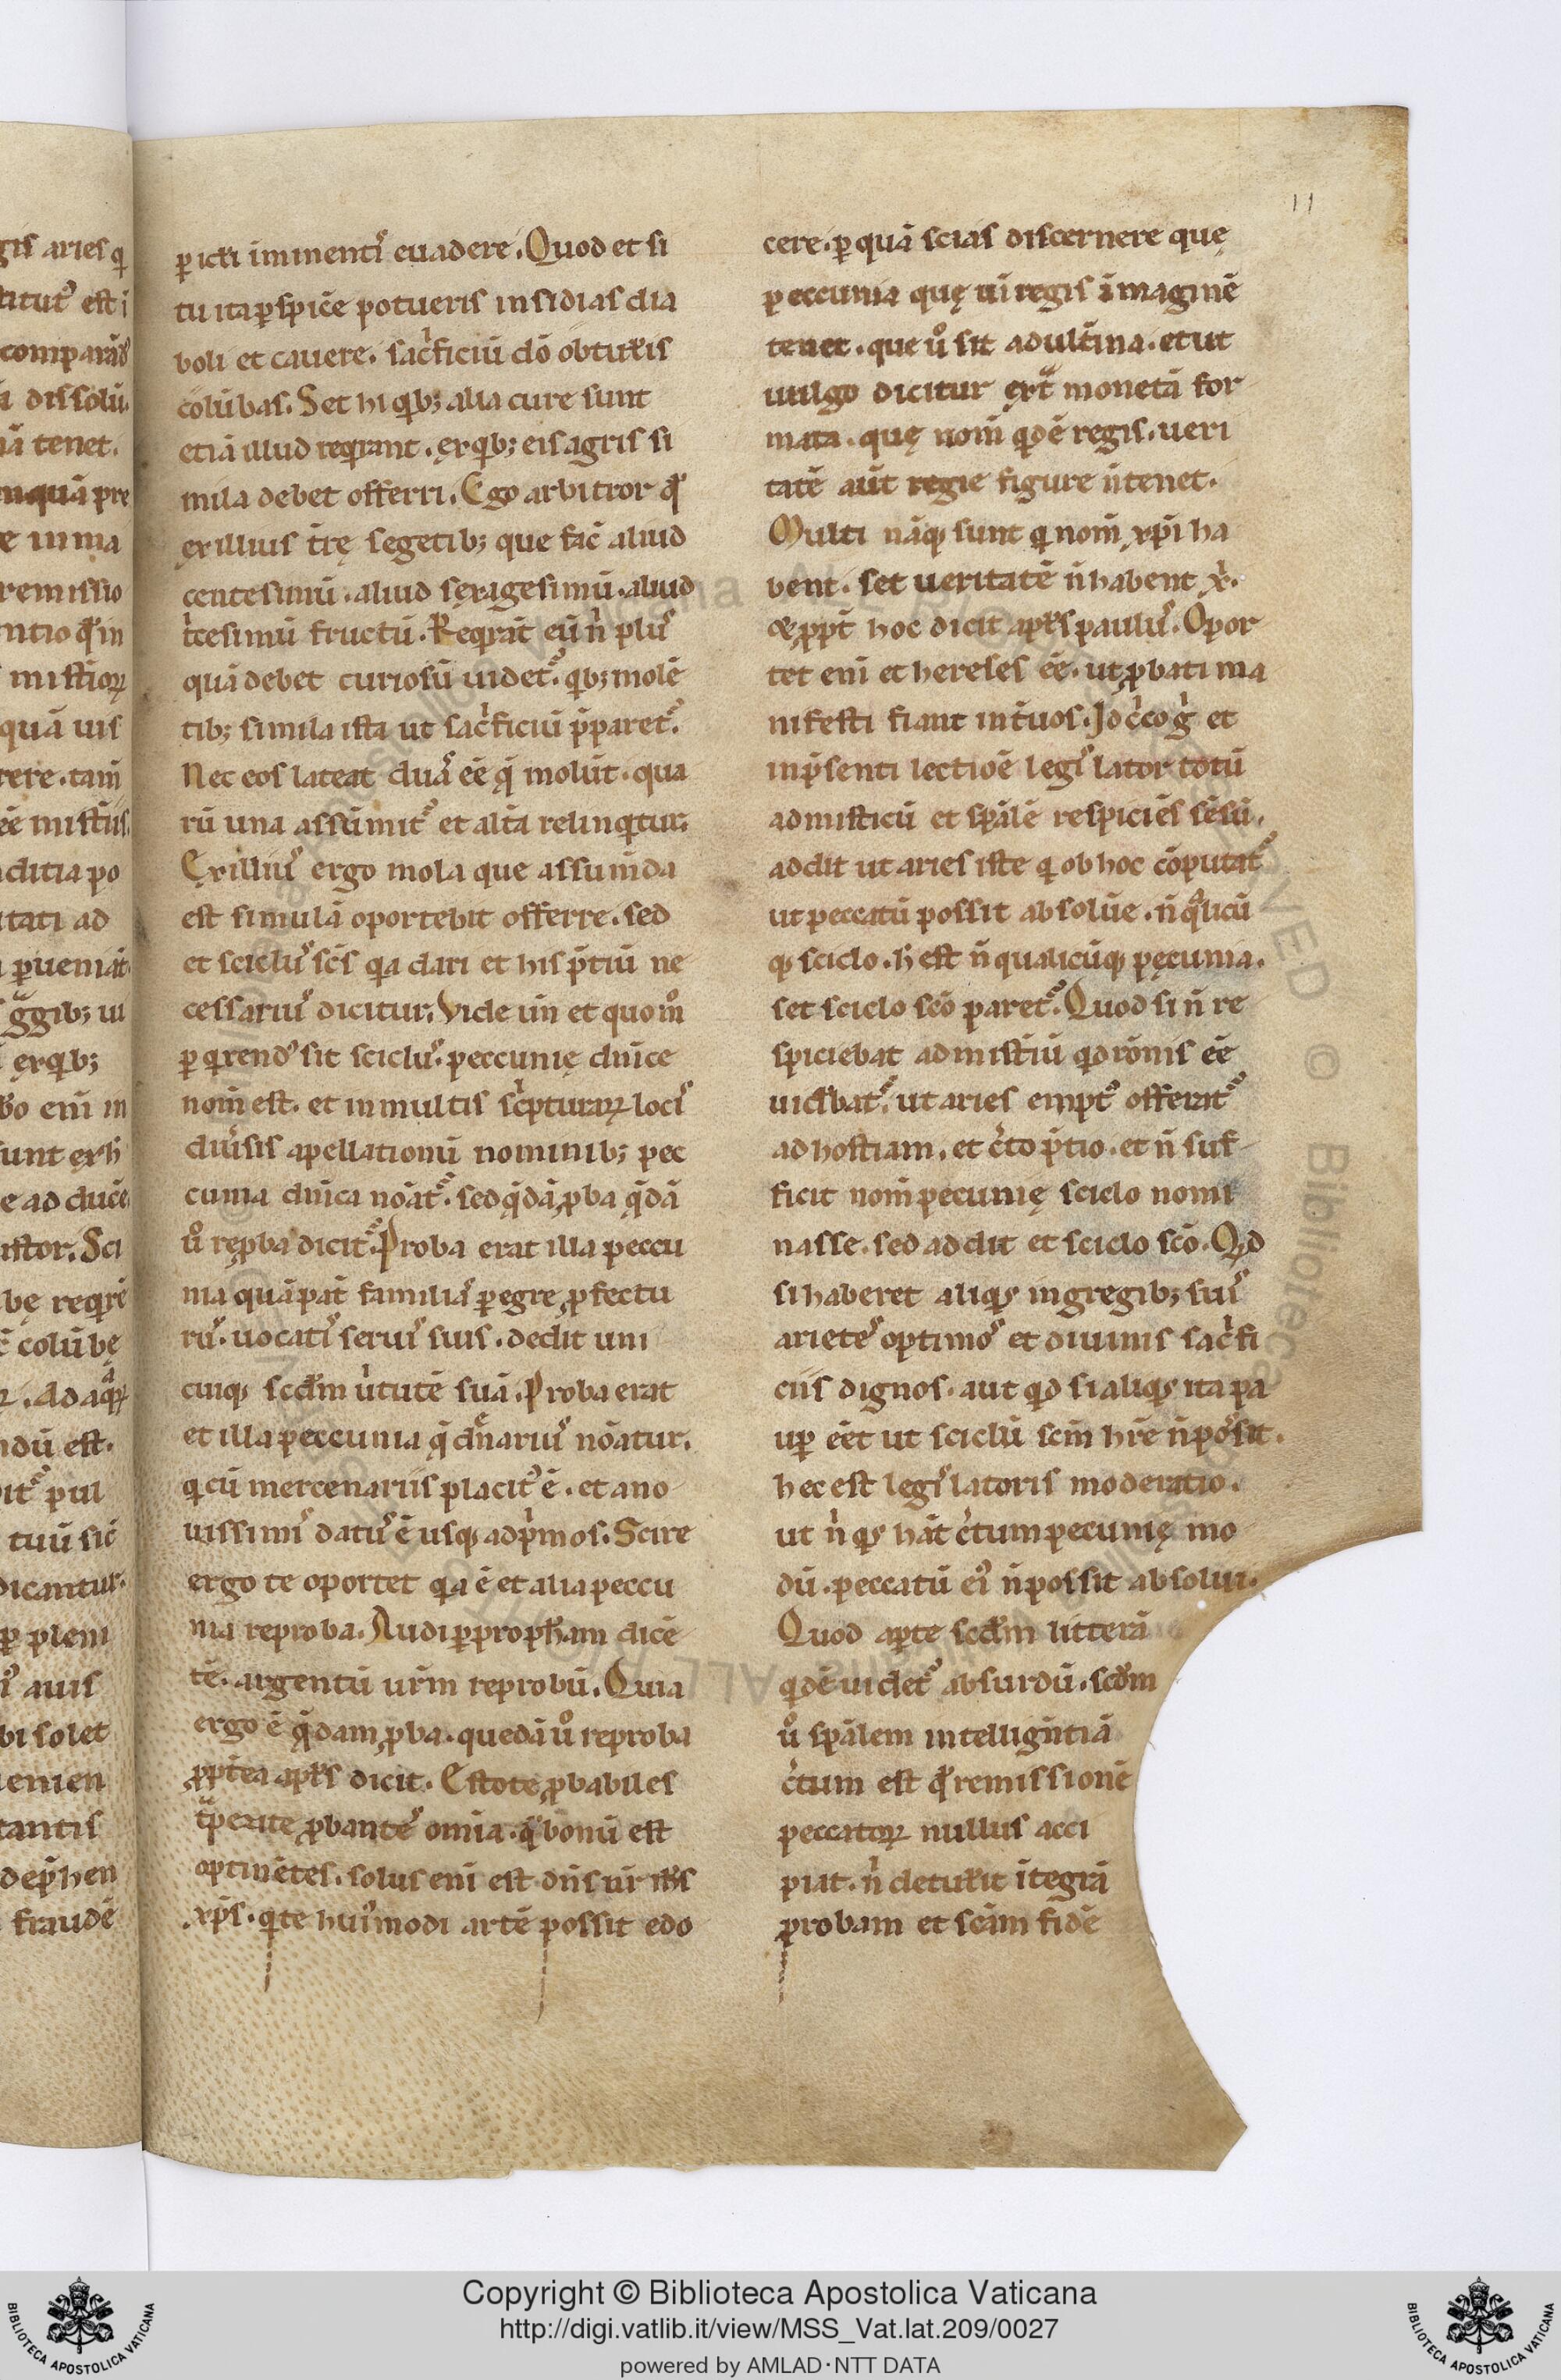 11
gis aries q
titut᷒ est i
comparad᷒
dissolu
nā tenet.
nquā pre
e in ma
remissio
ntio qđ in
misticoꝝ
quā uis
rere. tam̄
ēe mistiis.
ditia po
itati ad
ꝑueniāt
gͣgib; ui
ęxqͥb;
ƀo eni in
sunt exh
e adducē
istor. Sci
bę reqͥrē
colūbę
ꝝ. Ad aqͣꝝ
ndū est.
it᷒ pul
tuū sic̄
dicantur.
ꝑ pleni
auis
bi solet
enien
tantis
dep̄hen
fraudē
ꝑicłi iminenti᷒ euadere. Quod et si
tu ita ꝑspice᷒ potueris insidias dia
boli et cauere. sac̓ficiū do᷒ obtul᷒is
colūbas. Set hi qͥb; alia cure sunt
etiā illud reqͥrant. ęxqͥb; eis agris si
mila debet offerri. Ego arbitror qđ
ęx illius tr̄ę segetib; que fac̄ aliud
centesimū. aliud sęxagesimū. aliud
tͥcesimū fructū. Reqͥrāt eū nͥ plus᷒
quā debet curiosū uidet᷒. qͥb; molē
tib; simila ista ut sac̓ficiū p̄paret᷒.
Nec eos lateat dua᷒ ēe qͣ molūt. qua
rū una assumit᷒ et alt̄a relinqͥtur.
Exilliu᷒ ergo mola que assum̄da
est similā oportebit offerre. sed
et sciclu᷒ sc̄s qͥa dari et his p̄tiū ne
cessariu᷒ dicitur. Vide un̄ et quom̊
ꝑqͥrend᷒ sit sciclu᷒. peccunię dn̄ice
nom̄ est. et in multis sc̓pturaꝝ loci᷒
diu̓sis apellationū nominib; pec
cunia dn̄ica noāt᷒. sed qͣdā ꝓba qͣdā
ů reꝓba dicit᷒. Proba erat illa peccu
nia quā pat̄ familia᷒ ꝑegre ꝓfectu
ru᷒. uocati᷒ serui᷒ suis. dedit uni
cuiqꝫ scdm̄ u̓tutē suā. Proba erat
et illa peccunia qͣ dn̄ariu᷒ noātur.
qͥ cū mercenariis placit᷒ ē. et ano
uissimi᷒ datu᷒ ē usqꝫ adp̓mos. Scire
ergo te oportet qͥa ē et alia peccu
nia reproba. Audi ꝑ propħam dicē
tē. argentū ur̄m reprobū. Quia
ergo ē qͣdam ꝓba. quedā ů reproba
ꝓpt̄ea aptl̄s dicit. Estote ꝓbabiles
tͣpezite ꝓbante᷒ omīa. qđ bonū est
optinētes. solus eni est dn̄s nr̄ ih̄s
xp̄s. qͥ te hui᷒modi artē possit edo
cere. ꝑ quā scias discernere quę
peccunia quę ui regis imaginē
tenet. que ů sit adult̄ina. et ut
uulgo dicitur ęxtͣ monetā for
mata. quę nom̄ qͥdē regis. ueri
tatē aūt regie figure n̄ tenet.
Multi nāqꝫ sunt qͥ nom̄ xp̄i ha
bent. set ueritatē n̄ habent x̄.
& ꝓpt̄ hoc dicit aptl̄s paulu᷒. Opor
tet eni et hereses ēe. ut ꝓbati ma
nifesti fiant int̄ uos. Idc̓co gͥ et
inp̄senti lectiōe legi᷒ lator totū
ad misticū et sp̄ālē respiciēs sēsū.
addit ut aries iste qͥ ob hoc cōputat᷒
ut peccatū possit absolue᷒. n̄ qͣlicū
qꝫ sciclo. h̄ est n̄ qualicūqꝫ pęcunia.
set sciclo scō paret᷒. Quod si n̄ re
spiciebat ad mist̄iū qͥd rōnis ēe
uidebat᷒. ut aries empt᷒ offerat᷒
ad hostiam. et c̓to p̄tio. et n̄ suf
ficit nom̄ pecunię sciclo nomi
nasse. sed addit et sciclo scō. Qͥd
si haberet aliqͥs in gregib; sui᷒
ariete᷒ optimo᷒ et diuinis sac̓fi
ciis dignos. aut qͥd si aliqͥs ita pa
uꝑ eēt ut sciclū scm̄ hr̄e n̄ possit.
hec est legi᷒latoris moderatio.
ut nͥ qͥs hāt c̓tum pecunię mo
dū. peccatū ei᷒ n̄ possit absolui.
Quod aꝑte scdm̄ litterā
qͥdē uidet᷒ absurdū. scdm̄
ů sp̄ālem intellign̄tiā
c̓tum est qđ remissionē
peccatoꝝ nullus acci
piat. nͥ detul᷒it itegrā
probam et scām fidē
Copyright © Biblioteca Apostolica Vaticana
http://digi.vatlib.it/view/MSS_Vat.lat.209/0027
powered by AMLAD·NTT DATA
BIBLIOTECA APOSTOLICA VATICANA
BIBLIOTECA APOSTOLICA VATICANA